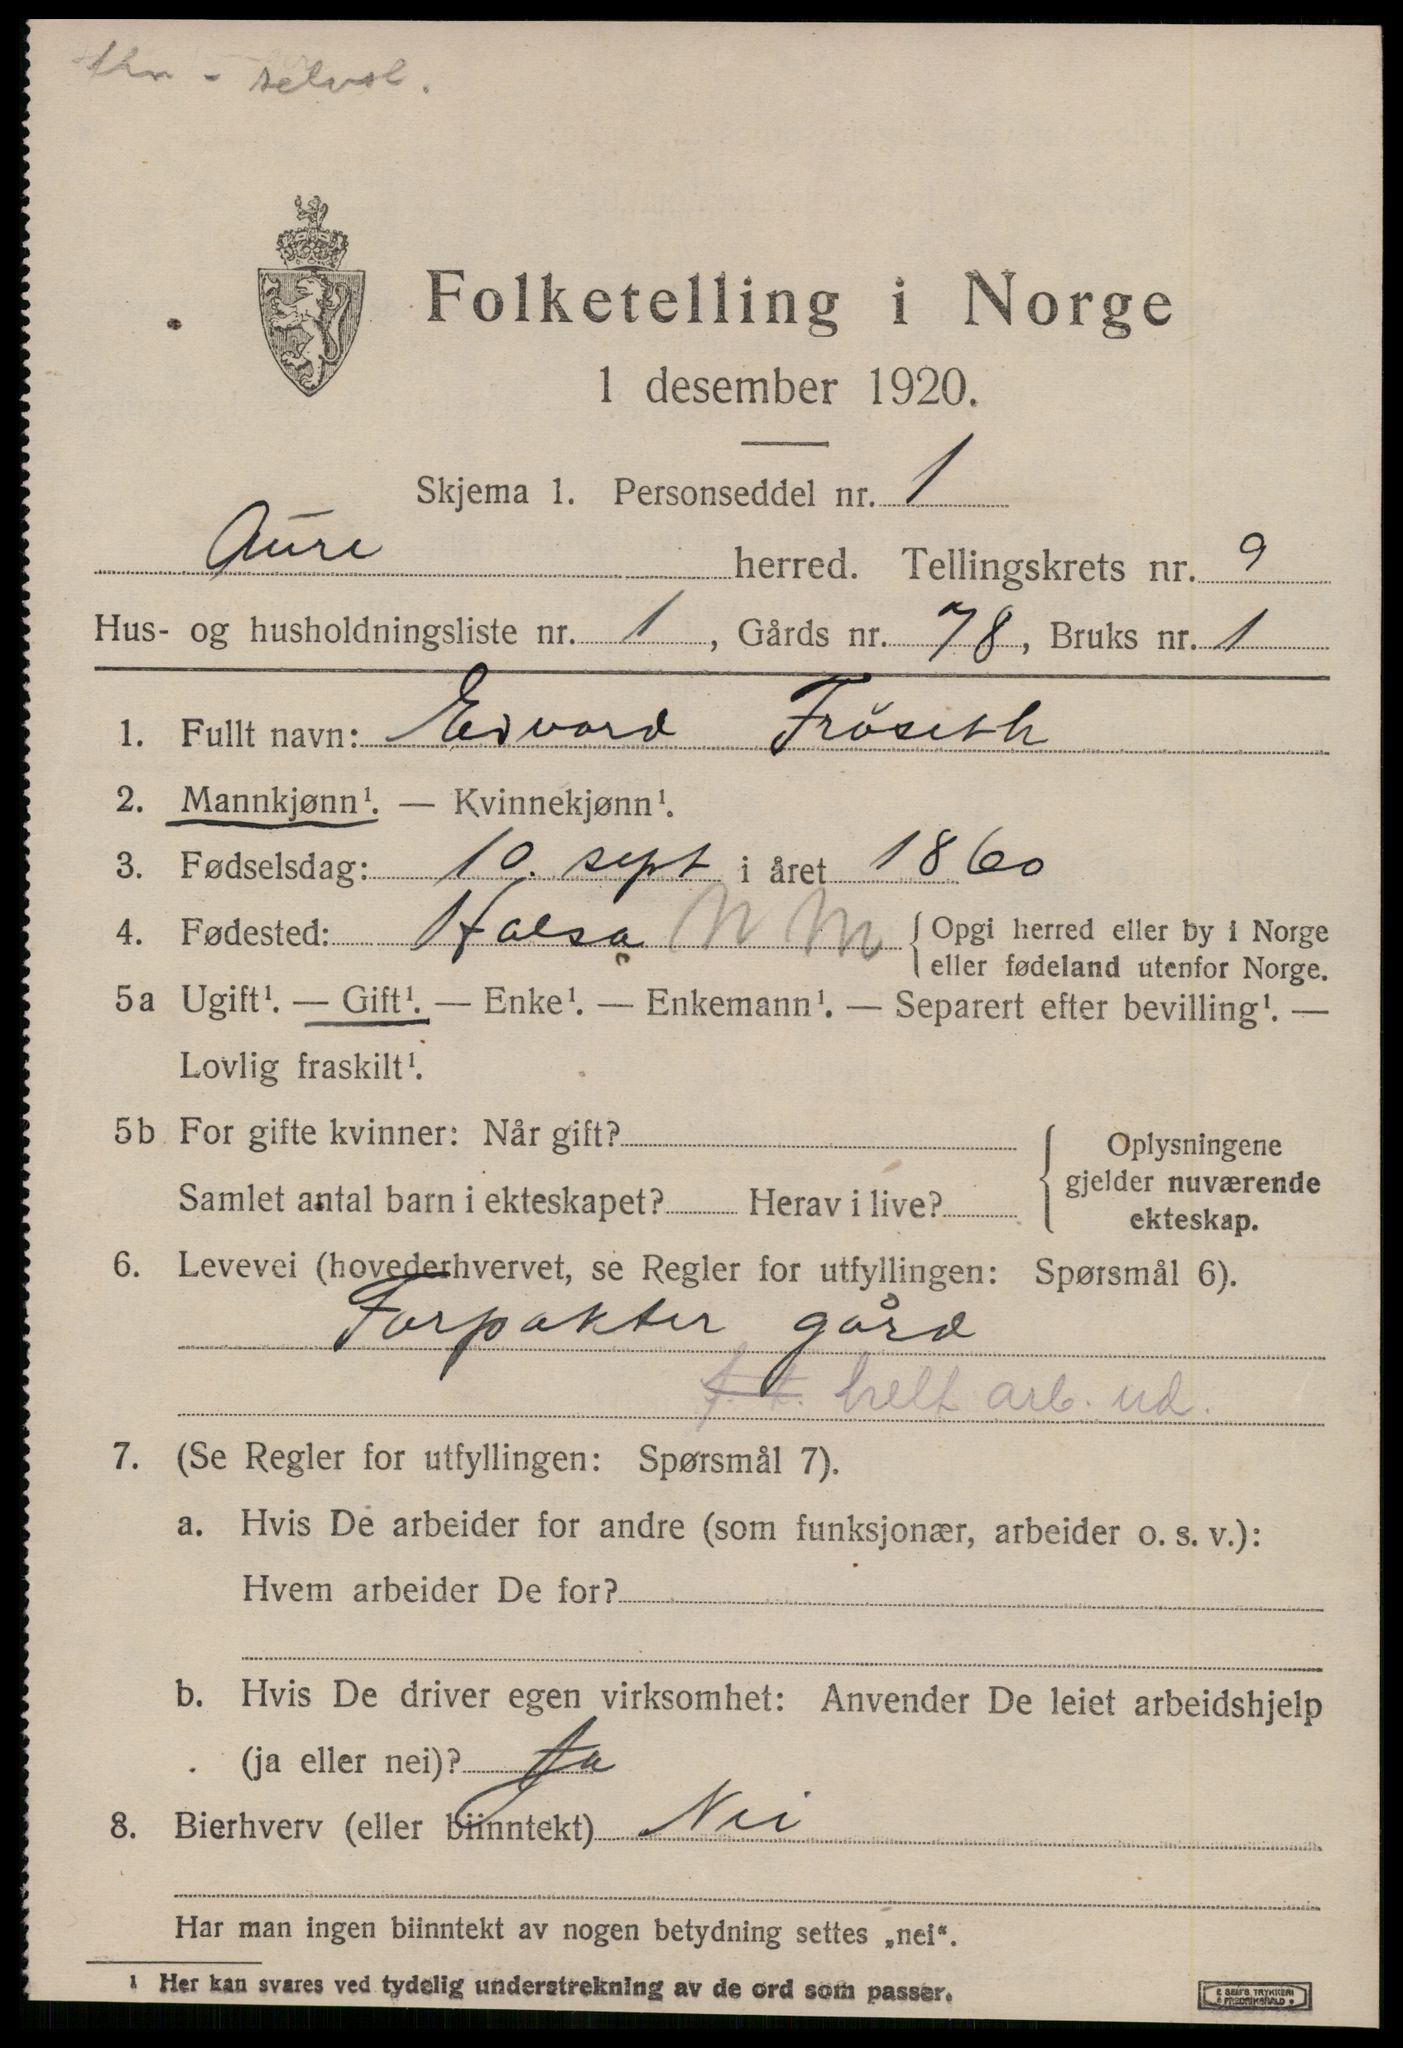 selvst.
Folketelling i Norge
1 desember 1920.
Skjema 1. Personseddel nr. 1
Aure herred. Tellingskrets nr. 9
Hus- og husholdningsliste nr. 1, Gårds nr. 78, Bruks nr. 1
1. Fullt navn: Edvard Fröseth
2. Mannkjønn¹. — Kvinnekjønn¹.
3. Fødselsdag: 10. sept i året 1860
4. Fødested: Halsa N M { Opgi herred eller by i Norge
eller fødeland utenfor Norge.
5a Ugift¹. — Gift¹. — Enke¹. — Enkemann¹. — Separert efter bevilling¹. —
Lovlig fraskilt¹.
5b For gifte kvinner: Når gift?
Samlet antal barn i ekteskapet? Herav i live?
{ Oplysningene
gjelder nuværende
ekteskap.
6. Levevei (hovederhvervet, se Regler for utfyllingen: Spørsmål 6).
Forpakter gård
f. t. helt arb. ud.
7. (Se Regler for utfyllingen: Spørsmål 7).
a. Hvis De arbeider for andre (som funksjonær, arbeider o. s. v.):
Hvem arbeider De for?
b. Hvis De driver egen virksomhet: Anvender De leiet arbeidshjelp
(ja eller nei)? Ja
8. Bierhverv (eller biinntekt) Nei
Har man ingen biinntekt av nogen betydning settes „nei“.
1 Her kan svares ved tydelig understrekning av de ord som passer.
E SEM'S TRYKKERI
FREDRIKSHALD